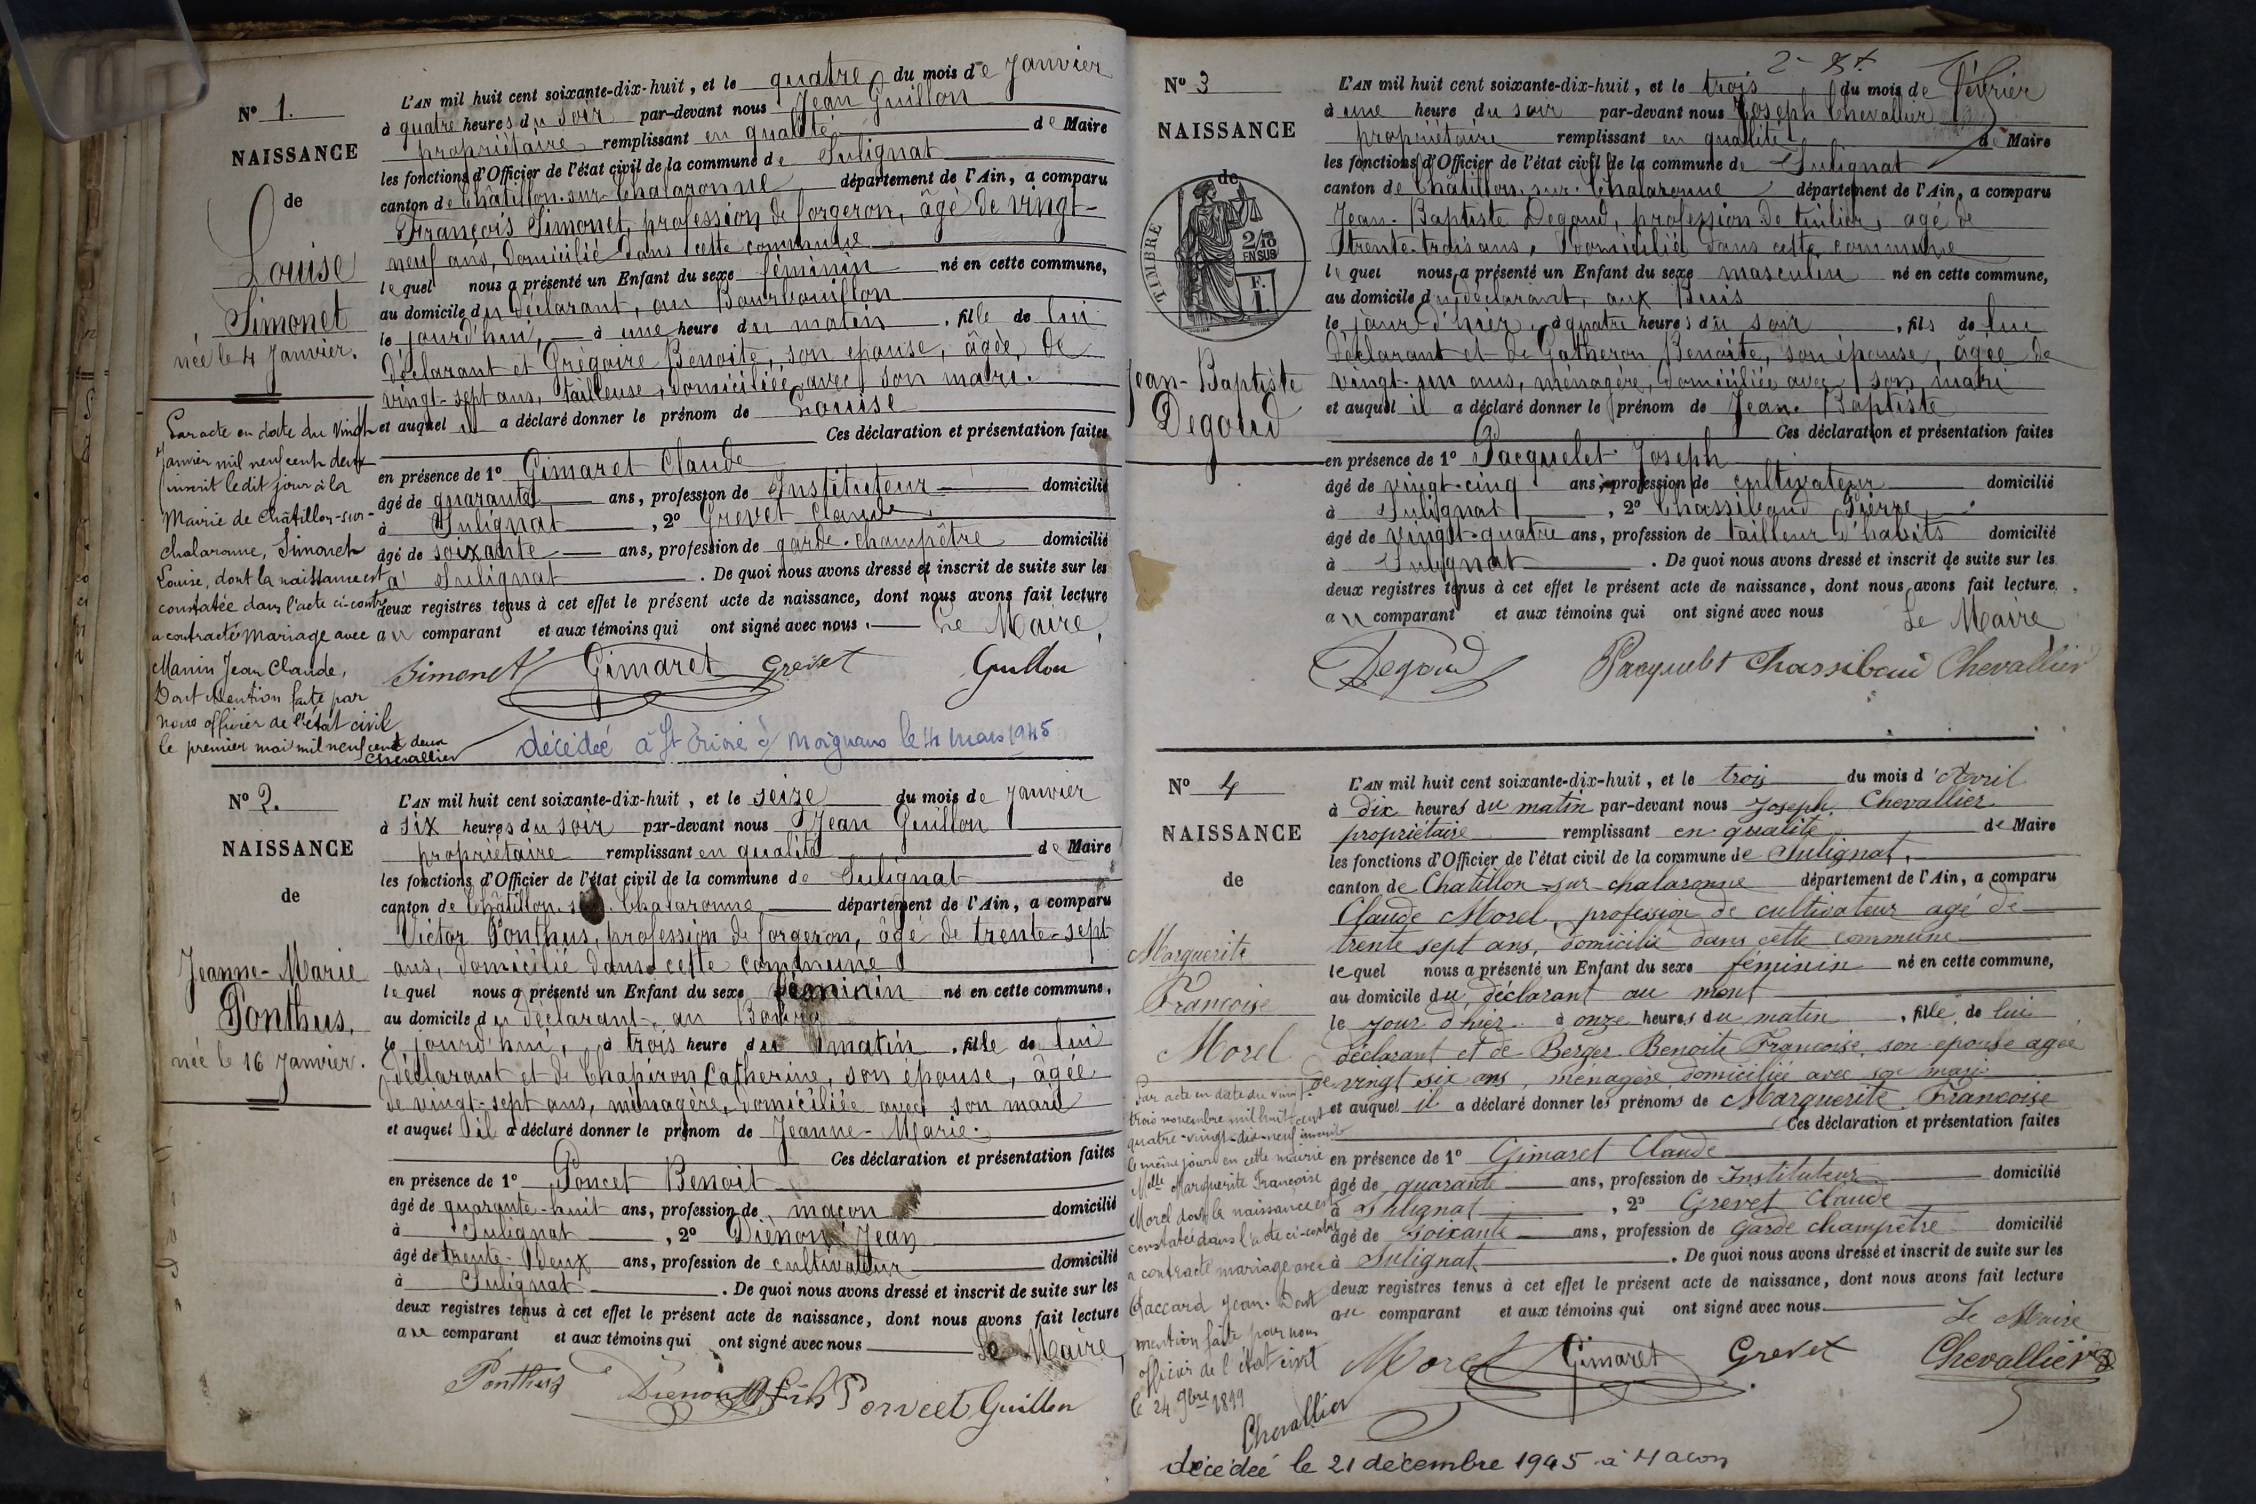 N° 1.
NAISSANCE
de
Louise
Simonet
née le 4 Janvier.
Par acte en date du vingt
Janvier mil neuf cent deux
inscrit le dit jour à la
Mairie de Châtillon-sur-
Chalaronne, Simonet
Louise, dont la naissance est
constatée dans l'acte ci-contre
a contracté mariage avec
Manin Jean Claude,
Dont Mention faite par
nous officier de l'état civil
le premier mai mil neuf cent deux
Chevallier
L'AN mil huit cent soixante-dix-huit, et le quatre du mois de Janvier
à quatre heures du soir par-devant nous Jean Guillon
propriétaire remplissant en qualité de Maire
les fonctions d'Officier de l'état civil de la commune de Sulignat
canton de Châtillon-sur-Chalaronne département de l'Ain, a comparu
François Simonet, profession de forgeron, âgé de vingt-
neuf ans, domicilié dans cette commune
lequel nous a présenté un Enfant du sexe féminin né en cette commune,
au domicile du déclarant, au Bourbouillon
le jourd'hui, à une heure du matin, fille de lui
déclarant et Grégoire Benoite, son épouse, âgée de
vingt-sept ans, tailleuse, domiciliée avec son mari.
et auquel il a déclaré donner le prénom de Louise
Ces déclaration et présentation faites
en présence de 1° Gimaret Claude
âgé de quarante ans, profession de Instituteur domicilié
à Sulignat, 2° Grevet Claude,
âgé de soixante ans, profession de garde-champêtre domicilié
à Sulignat. De quoi nous avons dressé et inscrit de suite sur les
deux registres tenus à cet effet le présent acte de naissance, dont nous avons fait lecture
au comparant et aux témoins qui ont signé avec nous. Le Maire,
Simonet Gimaret Grevet Guillon
décédée à St Trivier s/ Moignans le 14 mars 1945
N° 2.
NAISSANCE
de
Jeanne-Marie
Ponthus.
née le 16 Janvier.
L'AN mil huit cent soixante-dix-huit, et le seize du mois de Janvier
à six heures du soir par-devant nous Jean Guillon
propriétaire remplissant en qualité de Maire
les fonctions d'Officier de l'état civil de la commune de Sulignat
canton de Châtillon sur Chalaronne département de l'Ain, a comparu
Victor Ponthus, profession de forgeron, âgé de trente-sept
ans, domicilié dans cette commune
lequel nous a présenté un Enfant du sexe féminin né en cette commune,
au domicile du déclarant, au Bourg
le jourd'hui, à trois heure du matin, fille de lui
déclarant et de Chapiron Catherine, son épouse, âgée
de vingt-sept ans, ménagère, domiciliée avec son mari
et auquel il a déclaré donner le prénom de Jeanne-Marie.
Ces déclaration et présentation faites
en présence de 1° Poncet Benoit
âgé de quarante-huit ans, profession de maçon domicilié
à Sulignat, 2° Diénon Jean
âgé de trente-deux ans, profession de cultivateur domicilié
à Sulignat. De quoi nous avons dressé et inscrit de suite sur les
deux registres tenus à cet effet le présent acte de naissance, dont nous avons fait lecture
au comparant et aux témoins qui ont signé avec nous Le Maire,
Ponthus Diénon fils Poncet Guillon
N° 3
NAISSANCE
de
TIMBRE
2/10
EN SUS
F.
1
Jean-Baptiste
Degoud
L'AN mil huit cent soixante-dix-huit, et le trois du mois de février
à une heure du soir par-devant nous Joseph Chevallier
propriétaire remplissant en qualité de Maire
les fonctions d'Officier de l'état civil de la commune de Sulignat
canton de Châtillon-sur-Chalaronne département de l'Ain, a comparu
Jean-Baptiste Degoud, profession de tuilier, agé de
trente-trois ans, domicilié dans cette commune
lequel nous a présenté un Enfant du sexe masculin né en cette commune,
au domicile du déclarant, aux Buis
le jour d'hier, à quatre heures du soir, fils de lui
déclarant et de Gatheron Benoite, son épouse, âgée de
vingt-un ans, ménagère, domiciliée avec son mari
et auquel il a déclaré donner le prénom de Jean-Baptiste
Ces déclaration et présentation faites
en présence de 1° Pacquelet Joseph
âgé de vingt-cinq ans, profession de cultivateur domicilié
à Sulignat, 2° Chassiboud Pierre,
âgé de vingt-quatre ans, profession de tailleur d'habits domicilié
à Sulignat. De quoi nous avons dressé et inscrit de suite sur les
deux registres tenus à cet effet le présent acte de naissance, dont nous avons fait lecture
au comparant et aux témoins qui ont signé avec nous Le Maire
Degoud Pacquelet Chassiboud Chevallier
N° 4
NAISSANCE
de
Marguerite
Francoise
Morel
Par acte en date du vingt
trois novembre mil huit cent
quatre-vingt-dix-neuf inscrit
le même jour en cette mairie
Melle Marguerite Francoise
Morel dont la naissance est
constatée dans l'acte ci-contre
a contracté mariage avec
Jean. Dont
mention faite par nous
officier de l'état civil
le 24 9bre 1899
Chevallier
L'AN mil huit cent soixante-dix-huit, et le trois du mois d'Avril
à dix heures du matin par-devant nous Joseph Chevallier
propriétaire remplissant en qualité de Maire
les fonctions d'Officier de l'état civil de la commune de Sulignat,
canton de Chatillon-sur-chalaronne département de l'Ain, a comparu
Claude Morel, profession de cultivateur agé de
trente sept ans, domicilié dans cette commune
lequel nous a présenté un Enfant du sexe féminin né en cette commune,
au domicile du déclarant au mont
le jour d'hier à onze heures du matin, fille de lui
déclarant et de Berger Benoite Francoise, son epouse agée
de vingt six ans, ménagère, domiciliée avec son mari
et auquel il a déclaré donner les prénoms de Marguerite Francoise
Ces déclaration et présentation faites
en présence de 1° Gimaret Claude
âgé de quarante ans, profession de Instituteur domicilié
à Sulignat, 2° Grevet Claude
âgé de soixante ans, profession de garde champêtre domicilié
à Sulignat. De quoi nous avons dressé et inscrit de suite sur les
deux registres tenus à cet effet le présent acte de naissance, dont nous avons fait lecture
au comparant et aux témoins qui ont signé avec nous
Le Maire
Morel Gimaret Grevet Chevallier
décédée le 21 décembre 1945 à Macon